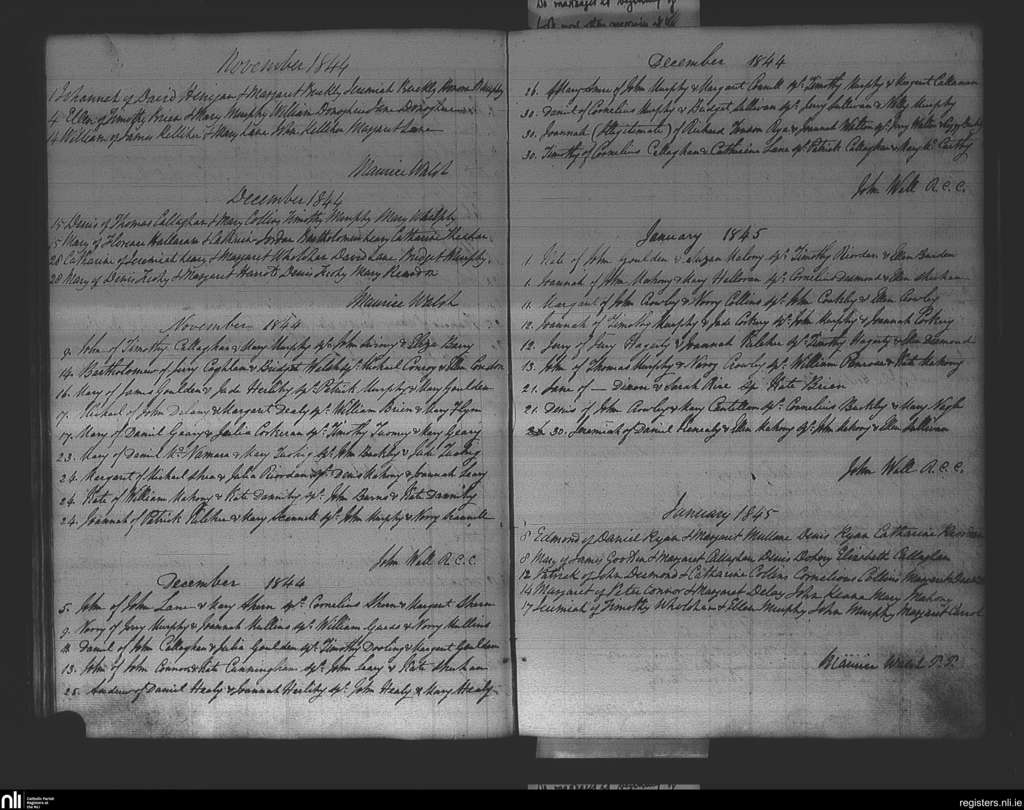 Do marriages at beginning of
November 1844
1 Johannah of David Henigan & Margaret Buckly Jeremiah Buckly Honora Murphy
4 Ellen of Timothy Brien & Mary Murphy William Donoghue Jane Donoghue
14 William of James Kelliher & Mary Lane John Kelliher Margaret Lane
Maurice Walsh
December 1844
15 Denis of Thomas Callaghan & Mary Collins Timothy Murphy Mary Whelply
15 Mary of Florence Hallaran & Cathrin Jordan Bartholomew Leary Catharine Meehan
28 Catharine of Jeremiah Leary & Margaret Wholehan David Lane Bridget Murphy
28 Mary of Denis & Margaret Denis Mary Reardon
Maurice Walsh
November 1844
9. John of Timothy Callaghan & Mary Murphy Sps. John & Eliza Barry
14. Bartholomew of Jerry Coghlan & Bridget Walsh Sps. Michael Conroy & Ellen Condon
16. Mary of James Goulden & Jude Herlihy Sps. Patrick Murphy & Mary Goulden
17. Michael of John Delany & Margaret Dealy Sps. William Brien & Mary Flynn
17. Mary of Daniel Geary & Julia Corkeran Sps. Timothy Twomy & Mary Geary
23. Mary of Daniel McNamara & Mary Sps. John Buckly & Jude
24. Margaret of Michael Shea & Julia Riordan Sps. Denis Mahony & Joannah Leary
24. Kate of William Mahony & Kate Sps. John Barns & Kate
24. Joannah of Patrick Kelcher & Mary Scannell Sps. John Murphy & Norry Scannell
John Wall R.C.C.
December 1844
5. John of John Lane & Mary Ahern Sps. Cornelius Ahern & Margaret Ahern
9. Norry of Jerry Murphy & Joannah Mullins Sps. William & Norry Mullins
Daniel of John Callaghan & Julia Goulden Sps. Timothy Dooling & Margaret Goulden
13. John of John Connor & Kate Cunningham Sps. John Leary & Kate
25. Andrew of Daniel Healy & Joannah Herlihy Sps. John Healy & Mary Healy
December 1844
26. Mary Anne of John Murphy & Margaret Sps. Timothy Murphy & Margaret Callanan
30. Daniel of Cornelius Murphy & Bridget Sullivan Sps. Jerry Sullivan & Murphy
30. Joannah (Illegitimate) of Richard & Joannah Walton Sps. Jerry Walton & Peggy Murphy
30. Timothy of Cornelius Callaghan & Catherine Lane Sps. Patrick Callaghan & Mary McCarthy
John Wall R.C.C.
January 1845
1. Kate of John Goulden & Suzan Malony Sps. Timothy Riordan & Ellen Barden
1. Joannah of John Mahony & Mary Halloran Sps. Cornelius Desmond & Ellen
11. Margaret of John Crowly & Norry Collins Sps. John Coakley & Ellen Crowly
12. Joannah of Timothy Murphy & Jude Corkery Sps. John Murphy & Joannah Corkery
12. Jerry of Jerry Hagerty & Joannah Kelcher Sps. Timothy Hagerty & Ellen Desmond
13. John of Thomas Murphy & Norry Crowly Sps. William Penrose & Kate Mahony
21. Jane of — Dinon & Sarah Rice Sp. Kate Brien
21. Denis of John Crowly & Mary Cantillon Sps. Cornelius Buckley & Mary Nagle
30. Jeremiah of Daniel & Ellen Mahony Sps. John Mahony & Ellen Sullivan
John Wall R.C.C.
January 1845
8 Edmond of Daniel Ryan & Margaret Mullane Denis Ryan Catharine Reordan
8 Mary of James Goolden & Margaret Callaghan Denis Elizabeth Callaghan
12 Patrick of John Desmond & Catharine Collins Cornelious Collins Margaret
14 Margaret of Peter Connor & Margaret Delay John Keana Mary Mahony
17 Jeremiah of Timothy Wholehan & Ellen Murphy John Murphy Margaret Carrol
Maurice Walsh P.P.
nli
Catholic Parish
Registers at
the NLI
registers.nli.ie